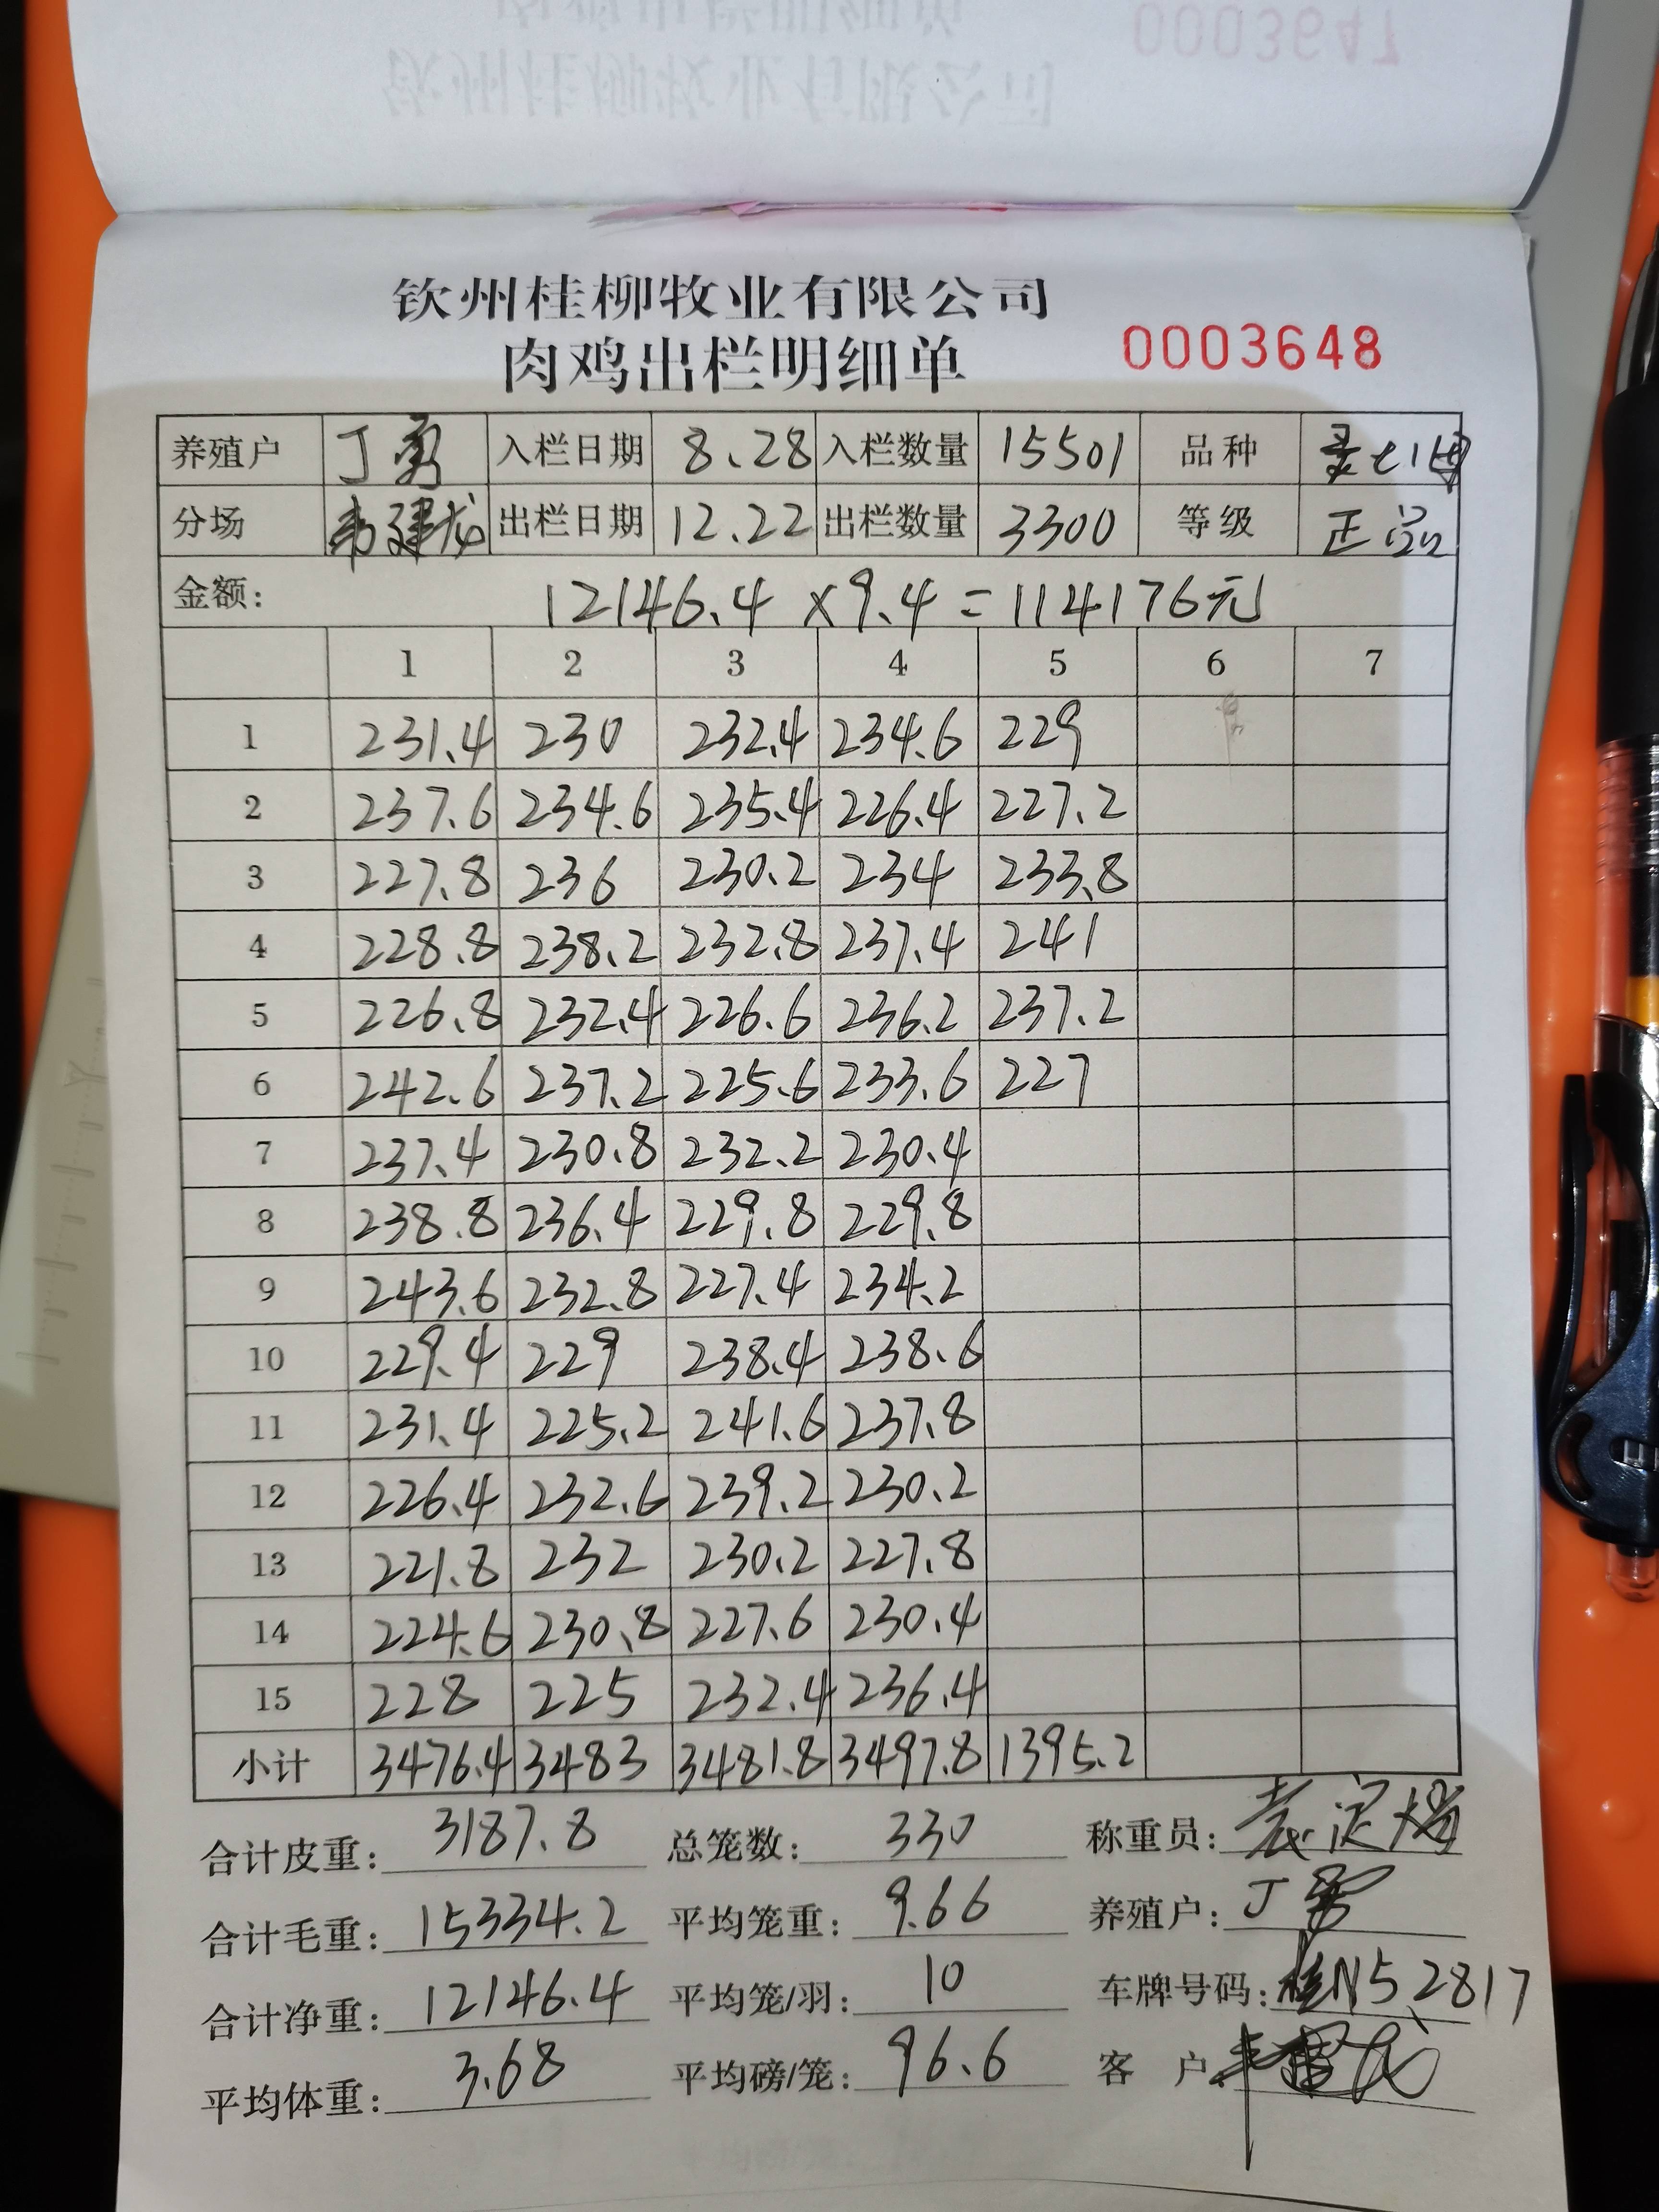 0003647
钦州桂柳牧业有限公司
肉鸡出栏明细单 0003648
养殖户 丁勇 入栏日期 8.28 入栏数量 15501 品种
分场 韦建龙 出栏日期 12.22 出栏数量 3300 等级 正品
金额: 12146.4×9.4=114176元
1 2 3 4 5 6 7
1 231.4 230 232.4 234.6 229
2 237.6 234.6 235.4 226.4 227.2
3 227.8 236 230.2 234 233.8
4 228.8 238.2 232.8 237.4 241
5 226.8 232.4 226.6 236.2 237.2
6 242.6 237.2 225.6 233.6 227
7 237.4 230.8 232.2 230.4
8 238.8 236.4 229.8 229.8
9 243.6 232.8 227.4 234.2
10 229.4 229 238.4 238.6
11 231.4 225.2 241.6 237.8
12 226.4 232.6 239.2 230.2
13 221.8 232 230.2 227.8
14 224.6 230.8 227.6 230.4
15 228 225 232.4 236.4
小计 3476.4 3483 3481.8 3497.8 1395.2
合计皮重: 3187.8 总笼数: 330 称重员:
合计毛重: 15334.2 平均笼重: 9.66 养殖户: 丁勇
合计净重: 12146.4 平均笼/羽: 10 车牌号码: 桂N52817
平均体重: 3.68 平均磅/笼: 96.6 客户